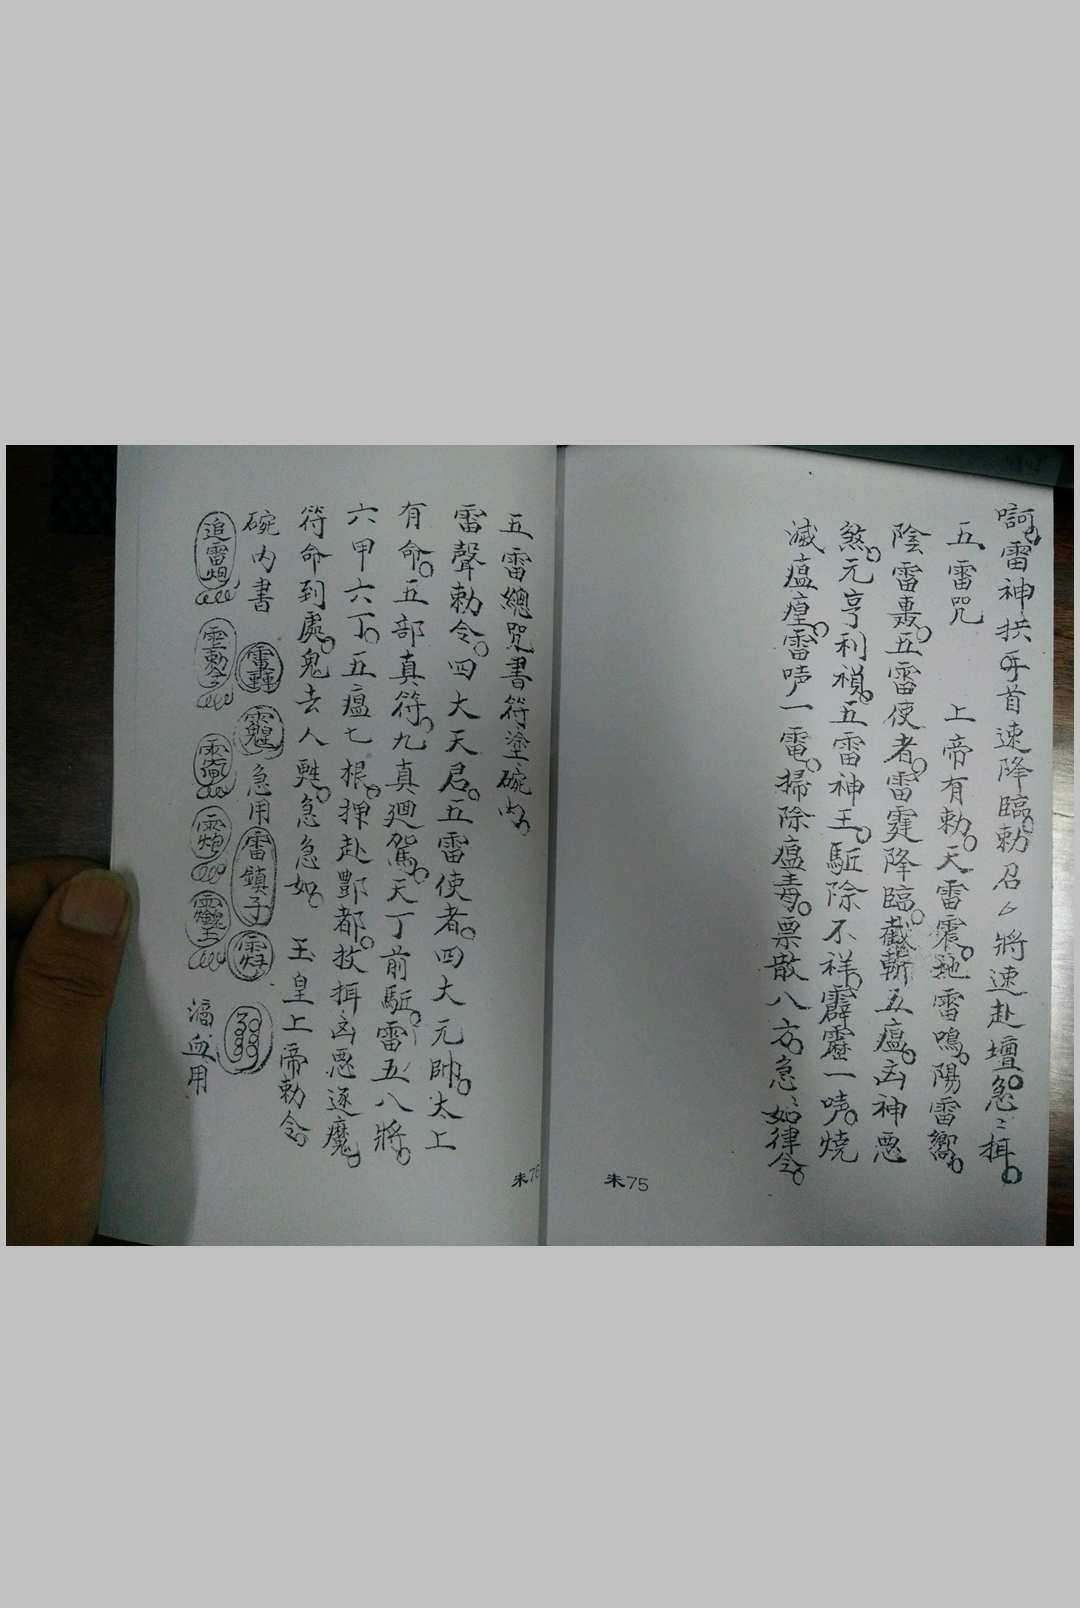 雷神拱手首速降臨。勅召厶將速赴壇。急〻揖。
五雷咒　上帝有勅。天雷震。地雷鳴。陽雷嚮。
陰雷轟。五雷使者。雷霆降臨。截斬五瘟。凶神悪
煞。元亨利禎。五雷神王。駈除不祥。霹靂一嘡。燒
滅瘟瘽。雷嘡一電。掃除瘟毒。票散八方。急〻如律令。
朱75
五雷總咒書符塗碗内。
雷聲勅令。四大天君。五雷使者。四大元帥。太上
有命。五部真符。九真廻駕。天丁前駈。雷五八將。
六甲六丁。五瘟七根。押赴酆都。扙揖凶悪逐魔。
符命到處。鬼去人甦。急急如。　玉皇上帝勅令。
碗内書　急用　雷鎮子
追雷　勅令
血用
朱76